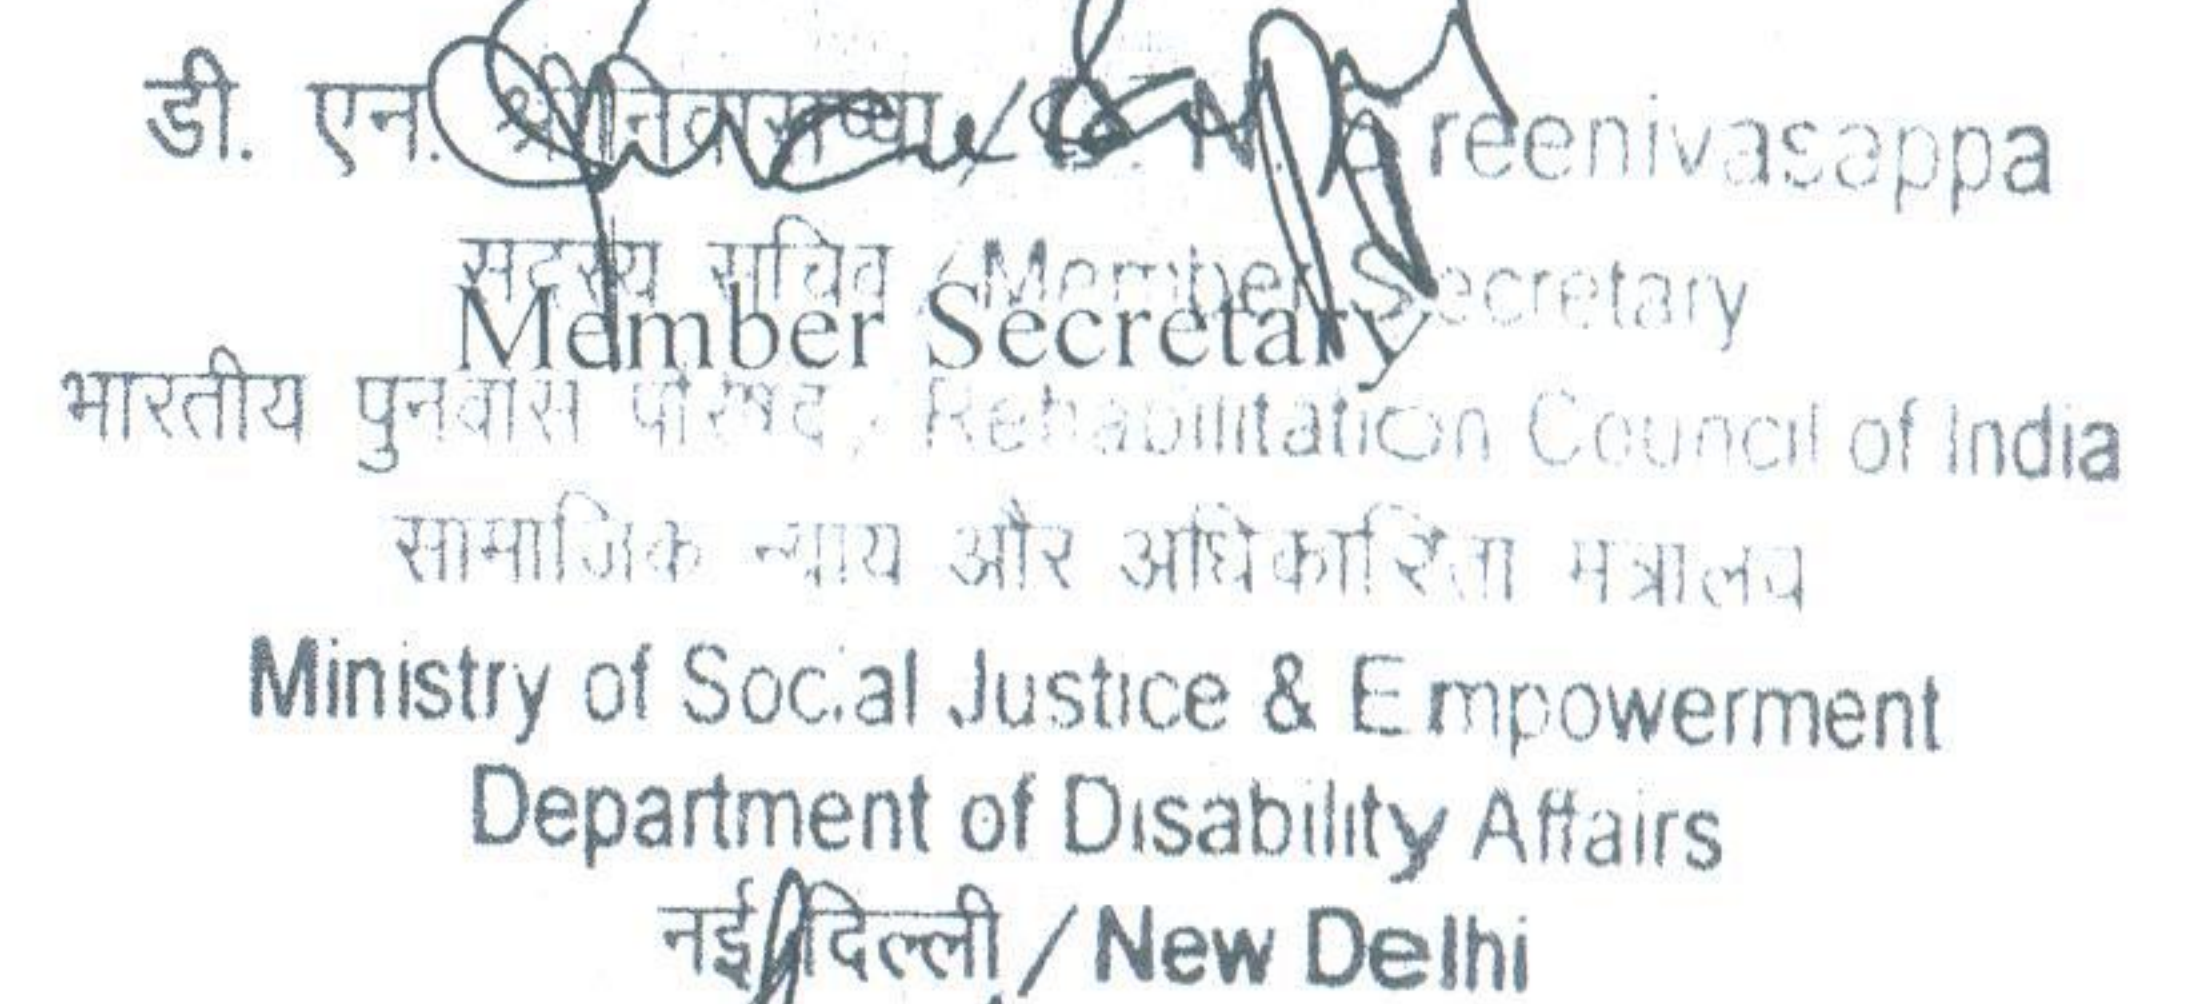 डी. एन. श्रीनिवासप्पा / D. N. Sreenivasappa
सदस्य सचिव / Member Secretary
Member Secretary
भारतीय पुनर्वास परिषद / Rehabilitation Council of India
सामाजिक न्याय और अधिकारिता मंत्रालय
Ministry of Social Justice & Empowerment
Department of Disability Affairs
नई दिल्ली / New Delhi